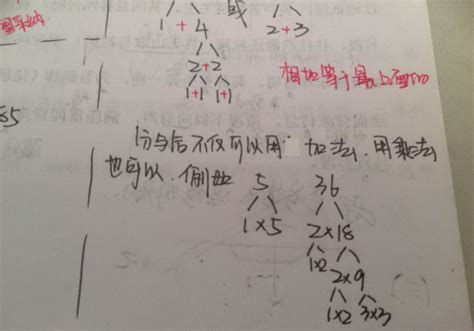 采纳
1+4
或
2+3
2+2
1+1 1+1
相加等于最上面的
85
分与合不仅可以用 加法,用乘法
也可以.例如 5 36
1×5 2×18
1×2 2×9
1×2 3×3